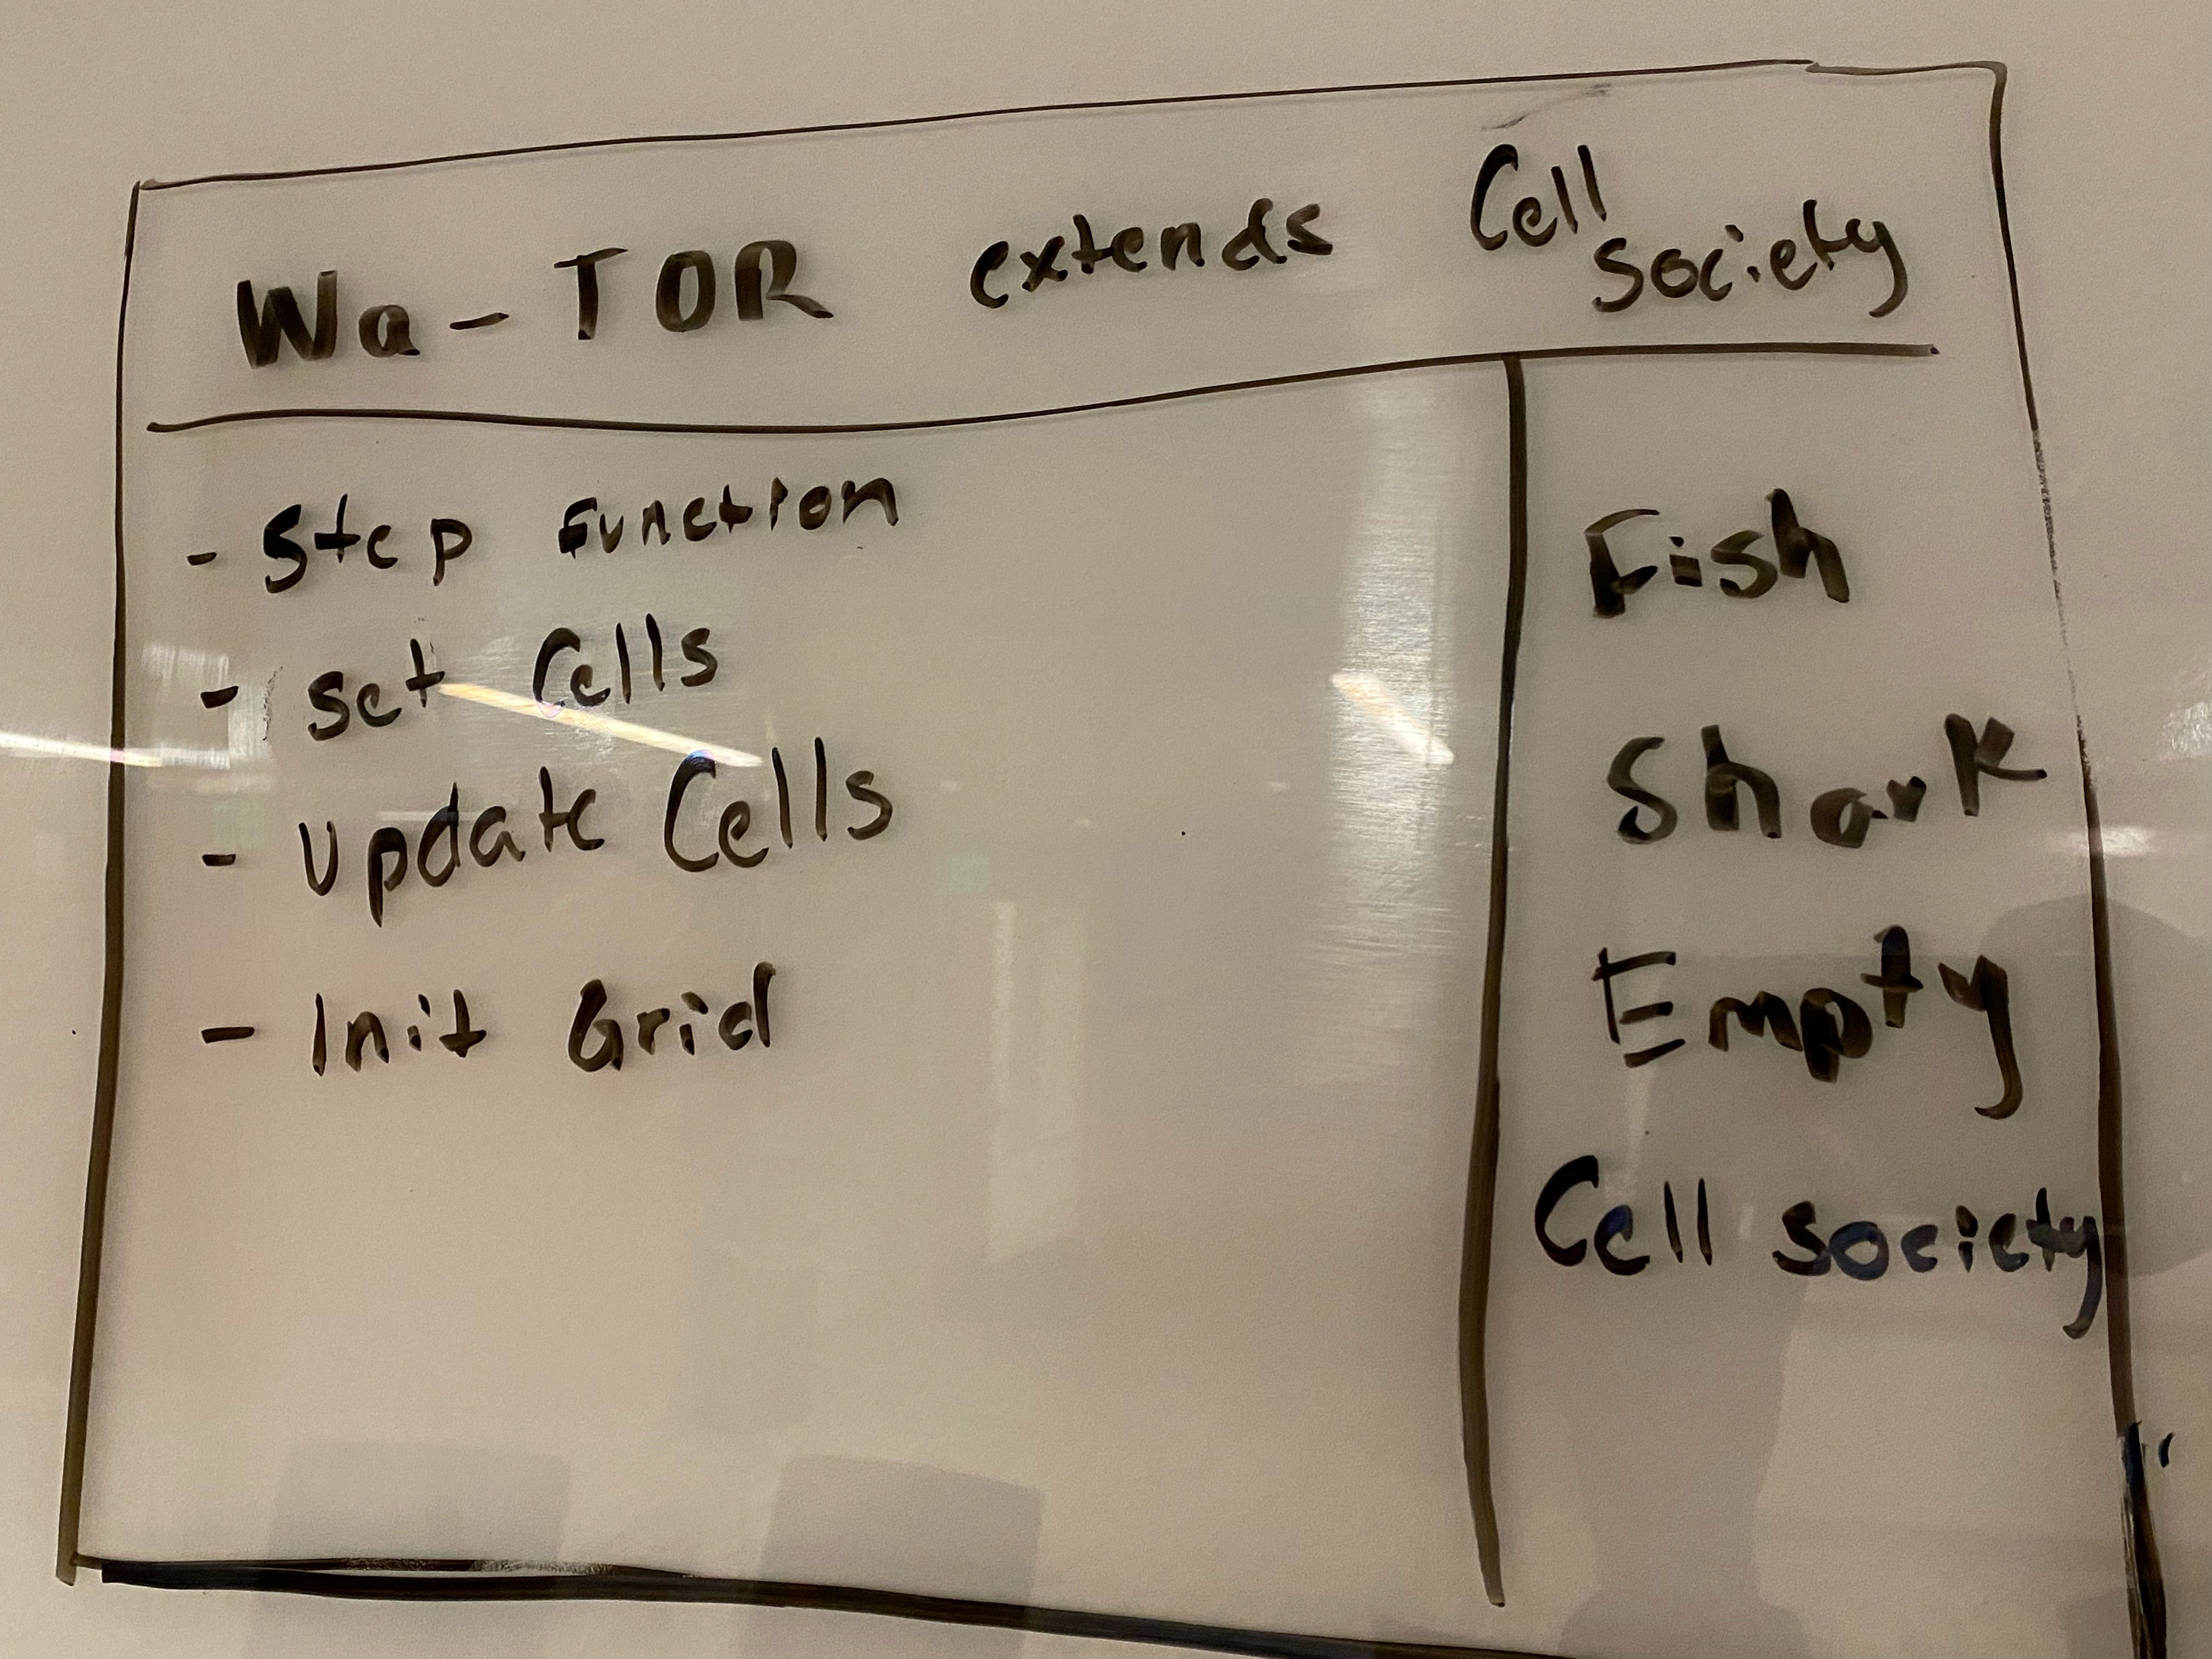 Wa-TOR extends Cell Society
- Step Function
- Set Cells
- Update Cells
- Init Grid
Fish
Shark
Empty
Cell society